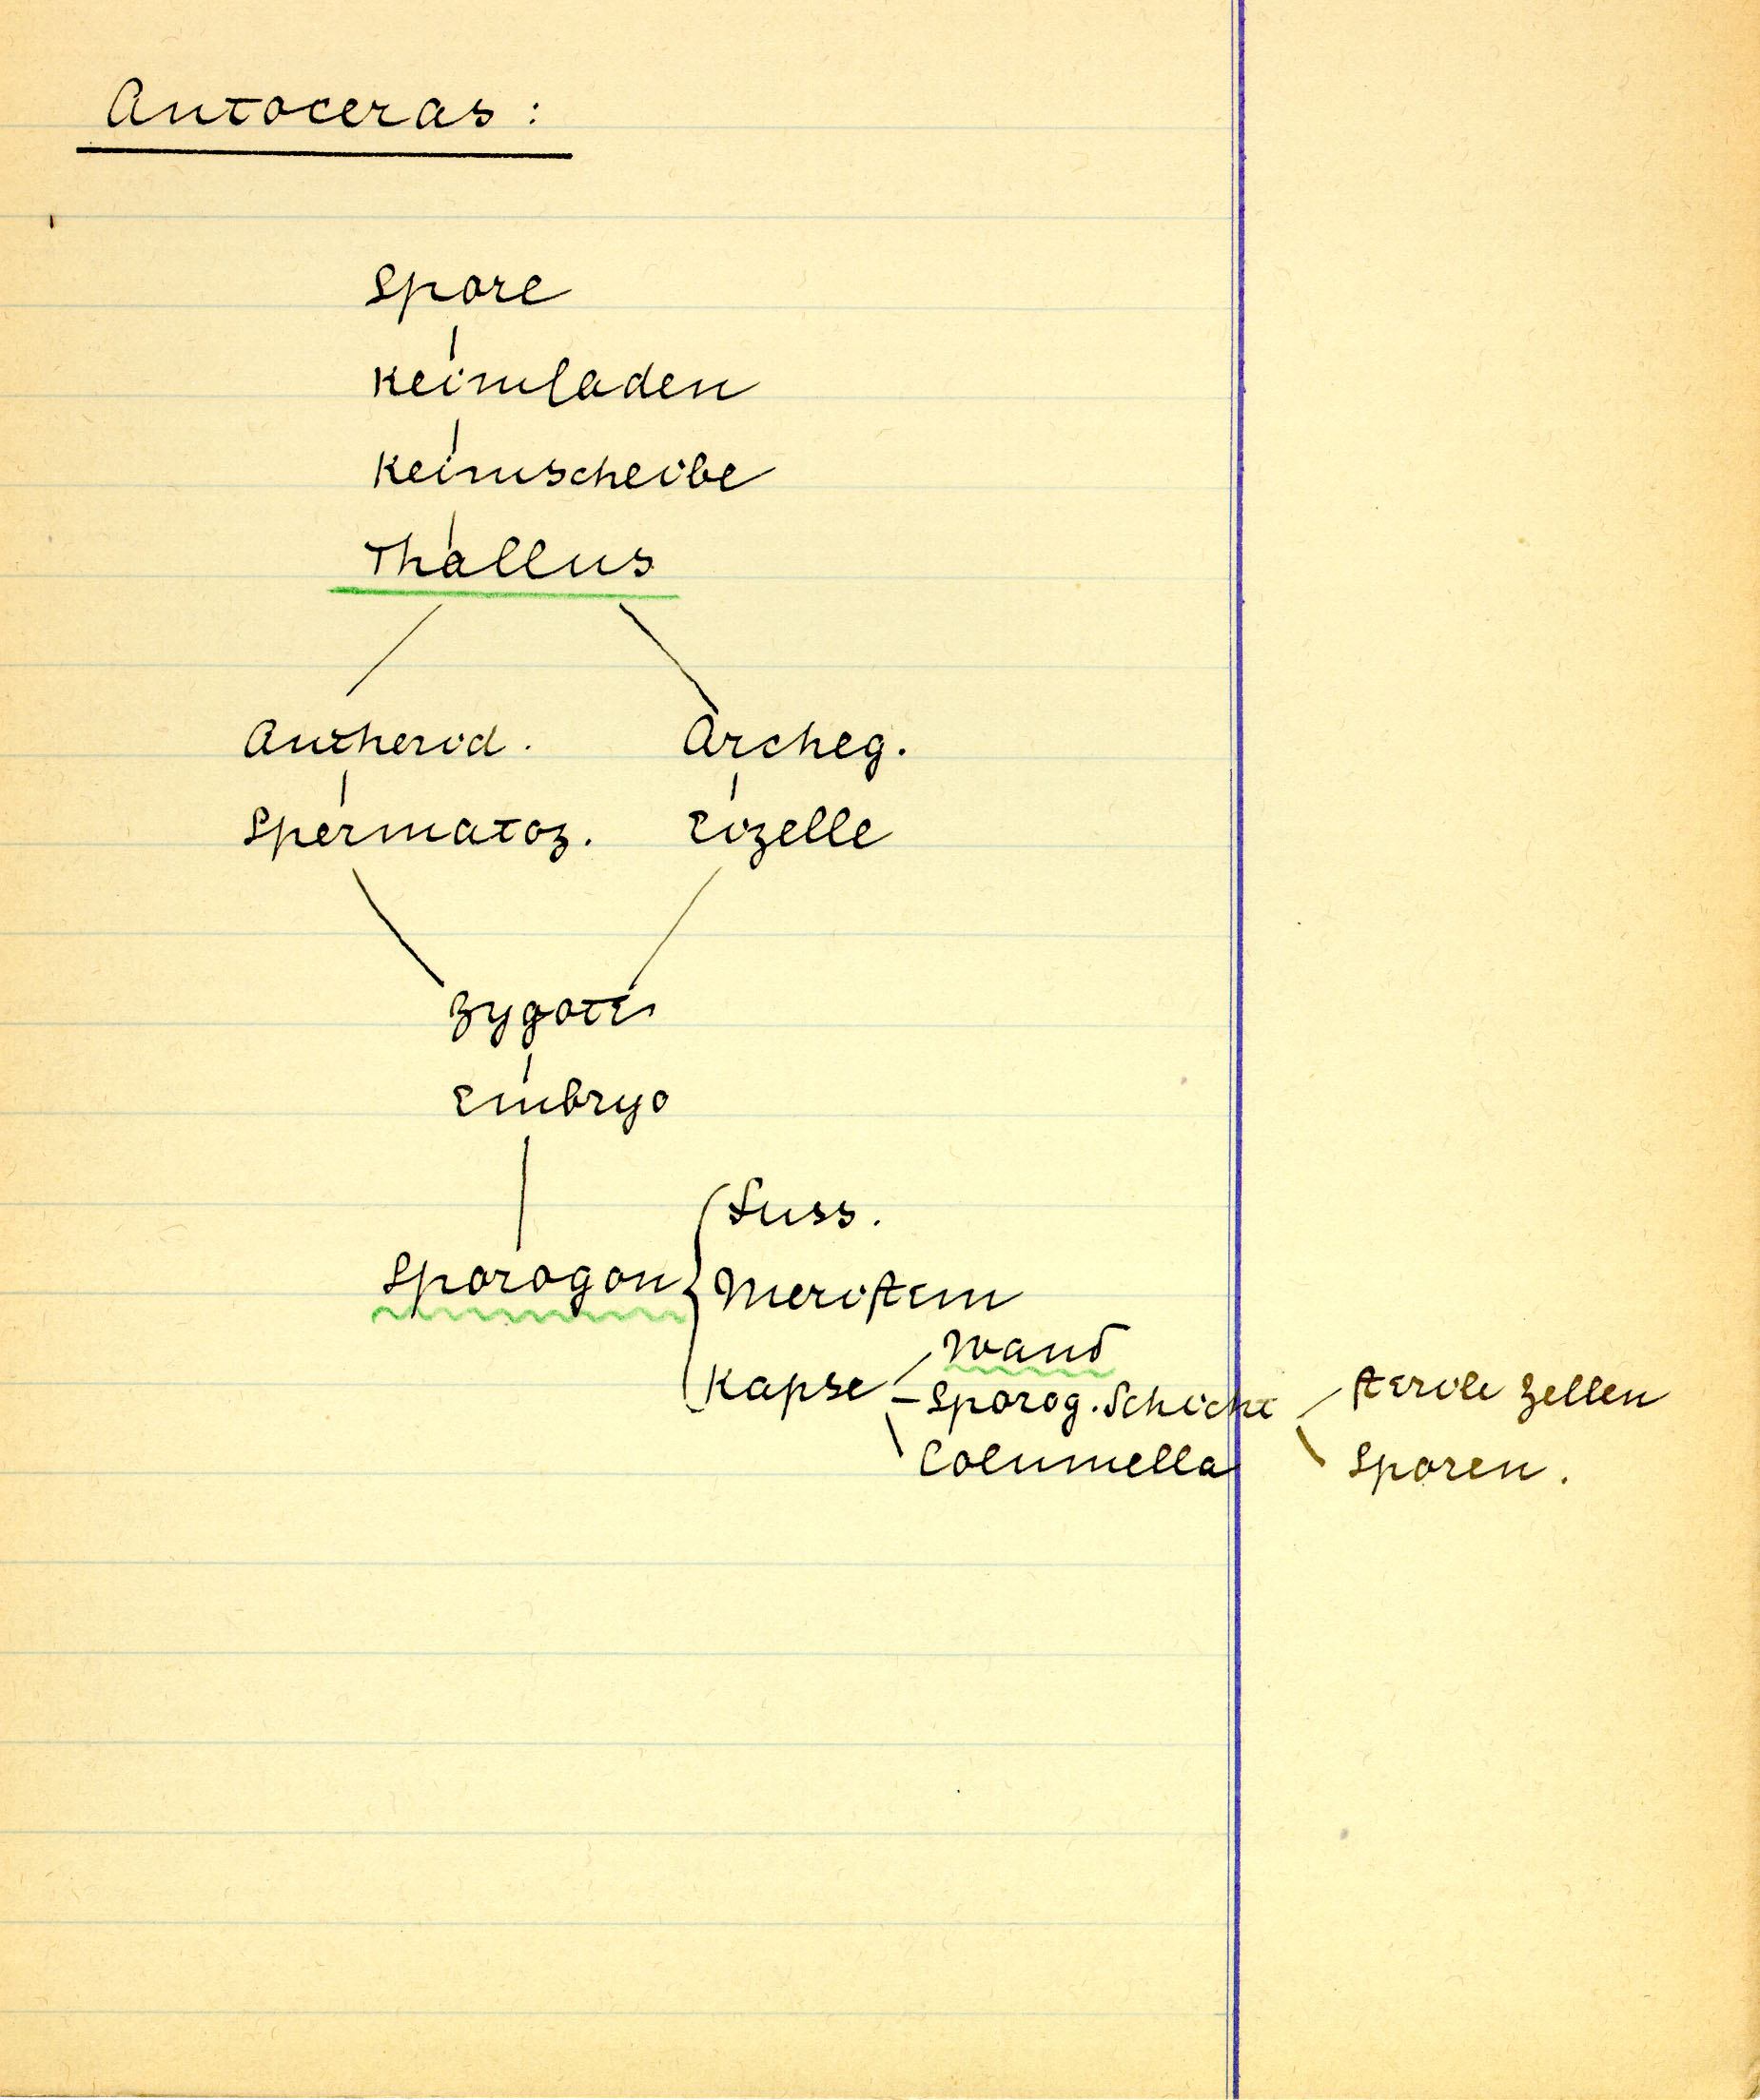 Antoceras:
Spore
Keimfaden
Keimscheibe
Thallus
Antherid. Archeg.
Spermatoz. Eizelle
Zygote
Embryo
Fuss.
Sporogon Meristem
Wand
Kapse Sporog. Schicht sterile Zellen
Columella Sporen.